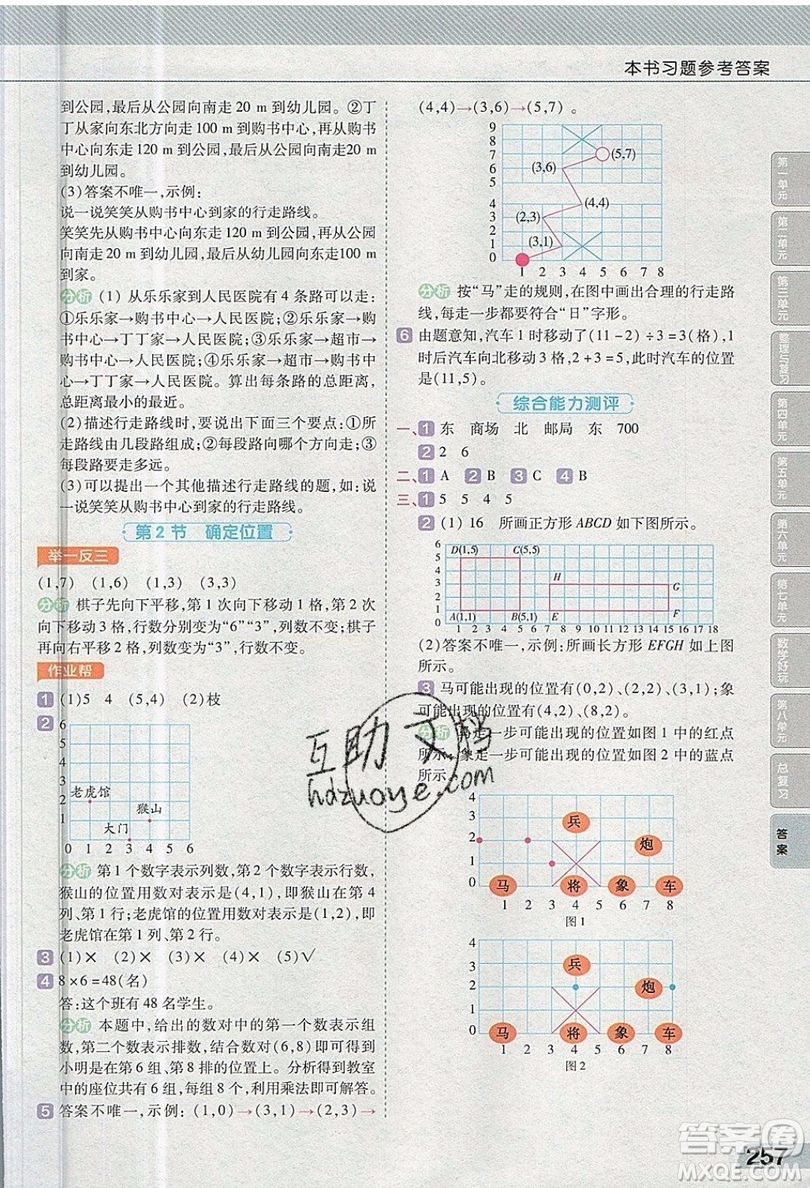 本书习题参考答案
到公园,最后从公园向南走 20 m 到幼儿园。②丁
丁从家向东北方向走 100 m 到购书中心,再从购书
中心向东走 120 m 到公园,最后从公园向南走
20 m 到幼儿园。
(3)答案不唯一,示例:
说一说笑笑从购书中心到家的行走路线。
笑笑先从购书中心向东走 120 m 到公园,再从公园
向东南走 100 m 到超市,最后从超市向南走 180 m
到家。
分析 (1) 从乐乐家到人民医院有 4 条路可以走:
①乐乐家→人民医院;②乐乐家→超市→人民医
院;③乐乐家→丁丁家→人民医院;④乐乐家→超
市→丁丁家→人民医院。算出每条路的总距离,
总距离最小的最近。
(2)描述行走路线时,要说出下面三个要点:①行
走路线由几段路组成;②每段路向哪个方向走;③
每段路要走多远。
(3)可以提出一个其他描述行走路线的题,如:说
一说笑笑从购书中心到家的行走路线。
第 2 节 确定位置
举一反三
(1,7) (1,6) (1,3) (3,3)
分析 棋子先向下平移,第 1 次向下移动 1 格,第 2 次
向下移动 3 格,行数分别变为“6”“3”,列数不变;棋子
再向右平移 2 格,列数变为“3”,行数不变。
作业帮
1 (1)5 4 (5,4) (2)枝
2
6
5
4
3
2
1
老虎馆
猴山
大门
0 1 2 3 4 5 6
分析 第 1 个数字表示列数,第 2 个数字表示行数,
猴山的位置用数对表示是(4,1),所以猴山在第 4
列、第 1 行;老虎馆的位置用数对表示是(1,2),所
以老虎馆在第 1 列、第 2 行。
3 (1)× (2)× (3)× (4)× (5)√
4 8×6=48(名)
答:这个班有 48 名学生。
分析 本题中,给出的数对中的第一个数表示组
数,第二个数表示排数,结合数对(6,8)即可得出
小明的位置在第 6 组第 8 排。分析示意图可知教室
中的座位共有 6 组,每组有 8 排,利用乘法即可解答。
5 答案不唯一,示例:(1,0)→(3,1)→(2,3)→
(4,4)→(3,6)→(5,7)。
9
8
7
6
5
4
3
2
1
0
(5,7)
(3,6)
(4,4)
(2,3)
(3,1)
1 2 3 4 5 6 7 8
分析 按“马”走的规则,在图中画出合理的行走路
线,每走一步都要符合“日”字形。
6 由题意知,汽车 1 时移动了(11-2)÷3=3(格),1
时后汽车向北移动 3 格,2+3=5,此时汽车的位置
是(11,5)。
综合能力测评
一、1 东 商场 北 邮局 东 700
2 2 6
二、1 A 2 B 3 C 4 B
三、1 5 5 4 5
2 (1) 16 所画正方形 ABCD 如下图所示。
6
5
4
3
2
1
0
D(1,5) C(5,5)
H G
A(1,1) B(5,1) E F
1 2 3 4 5 6 7 8 9 10 11 12 13 14 15 16 17 18
(2)答案不唯一,示例:所画长方形 EFGH 如上图
所示。
3 马可能出现的位置有(0,2)、(2,2)、(3,1);象
可能出现的位置有(4,2)、(8,2)。
分析 马走一步可能出现的位置如图 1 中的红点
所示,象走一步可能出现的位置如图 2 中的蓝点
所示。
4
3
2
1
0
兵
炮
马 将 象 车
1 2 3 4 5 6 7 8
图 1
4
3
2
1
0
兵
炮
马 将 象 车
1 2 3 4 5 6 7 8
图 2
第一单元
第二单元
第三单元
整理与复习
第四单元
第五单元
第六单元
第七单元
数学好玩
第八单元
总复习
答案
互助文档
hdzuoye.com
答案圈
MXQE.COM
257